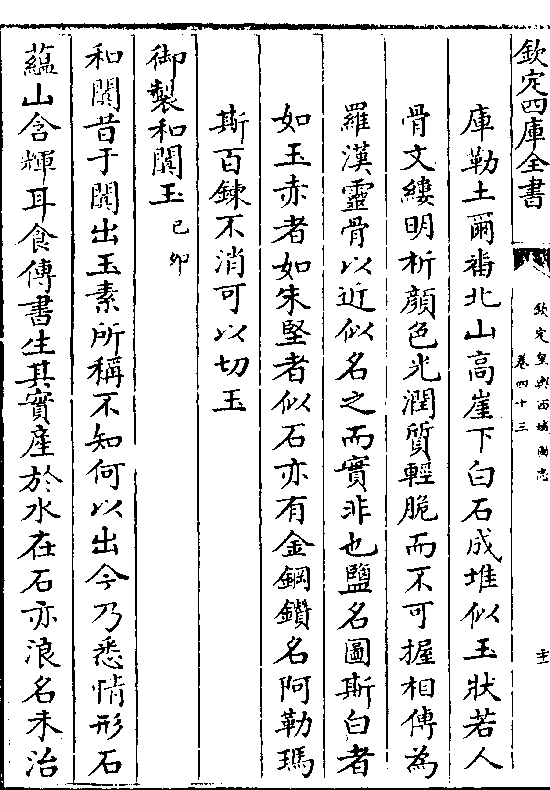 欽定四庫全書
欽定皇輿西域圖志
卷四十三
庫勒土爾番北山高崖下白石成堆似玉狀若人
骨文縷明析顔色光潤質輕脆而不可握相傳為
羅漢靈骨以近似名之而實非也鹽名圖斯白者
如玉赤者如朱堅者似石亦有金鋼鑽名阿勒瑪
斯百鍊不消可以切玉
御製和闐玉己卯
和闐昔于闐出玉素所稱不知何以出今乃悉情形石
藴山含輝耳食傳書生其實産於水在石亦浪名未治